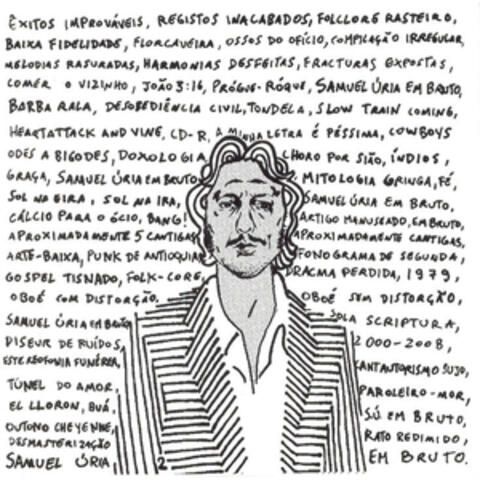 ÊXITOS IMPROVÁVEIS, REGISTOS INACABADOS, FOLCLORE RASTEIRO,
BAIXA FIDELIDADE, FLORCAVEIRA, OSSOS DO OFÍCIO, COMPILAÇÃO IRREGULAR,
MELODIAS RASURADAS, HARMONIAS DESFEITAS, FRACTURAS EXPOSTAS,
COMER O VIZINHO, JOÃO 3:16, PRÓGUE-RÓQUE, SAMUEL ÚRIA EM BRUTO,
BARBA RALA, DESOBEDIÊNCIA CIVIL, TONDELA, SLOW TRAIN COMING,
HEARTATTACK AND VINE, CD-R, A MINHA LETRA É PÉSSIMA, COWBOYS
ODES A BIGODES, DOXOLOGIA CHORO POR SIÃO, ÍNDIOS,
GRAÇA, SAMUEL ÚRIA EM BRUTO MITOLOGIA GRINGA, FÉ,
SOL NA EIRA, SOL NA IRA, SAMUEL ÚRIA EM BRUTO,
CÁLCIO PARA O ÓCIO, BANG! ARTIGO MANUSEADO, EM BRUTO,
APROXIMADAMENTE 5 CANTIGAS APROXIMADAMENTE CANTIGAS,
ARTE-BAIXA, PUNK DE ANTIOQUIA FONOGRAMA DE SEGUNDA,
GOSPEL TISNADO, FOLK-CORE, DRACMA PERDIDA, 1979,
OBOÉ COM DISTORÇÃO, OBOÉ SEM DISTORÇÃO,
SAMUEL ÚRIA EM BRUTO SOLA SCRIPTURA,
DISEUR DE RUÍDOS, 2000-2008,
ESTEREOFONIA FUNÉREA, CANTAUTORISMO SUJO,
TÚNEL DO AMOR, PAROLEIRO-MOR,
EL LLORON, BUÁ, SÚ EM BRUTO,
OUTONO CHEYENNE, RATO REDIMIDO,
DESMASTERIZAÇÃO
SAMUEL ÚRIA 2 EM BRUTO.